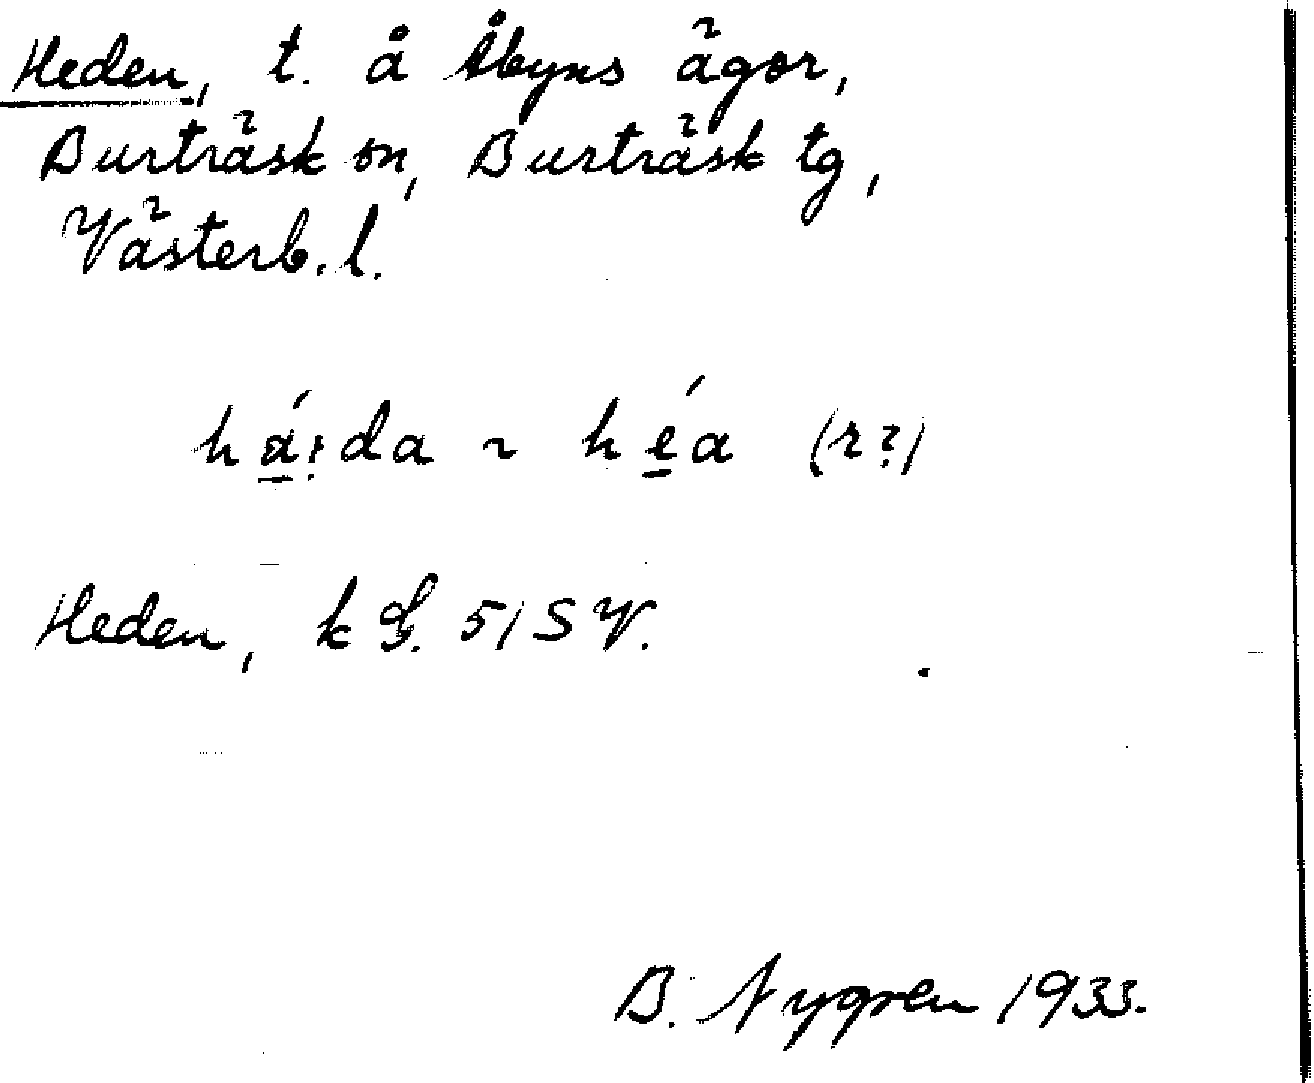 Heden, t. å Åbyns ägor,
Burträsk sn, Burträsk tg,
Västerb. l.
há̱:da ~ hé̱a (r?)
Heden, k G. 51 SV.
B. Nygren 1933.